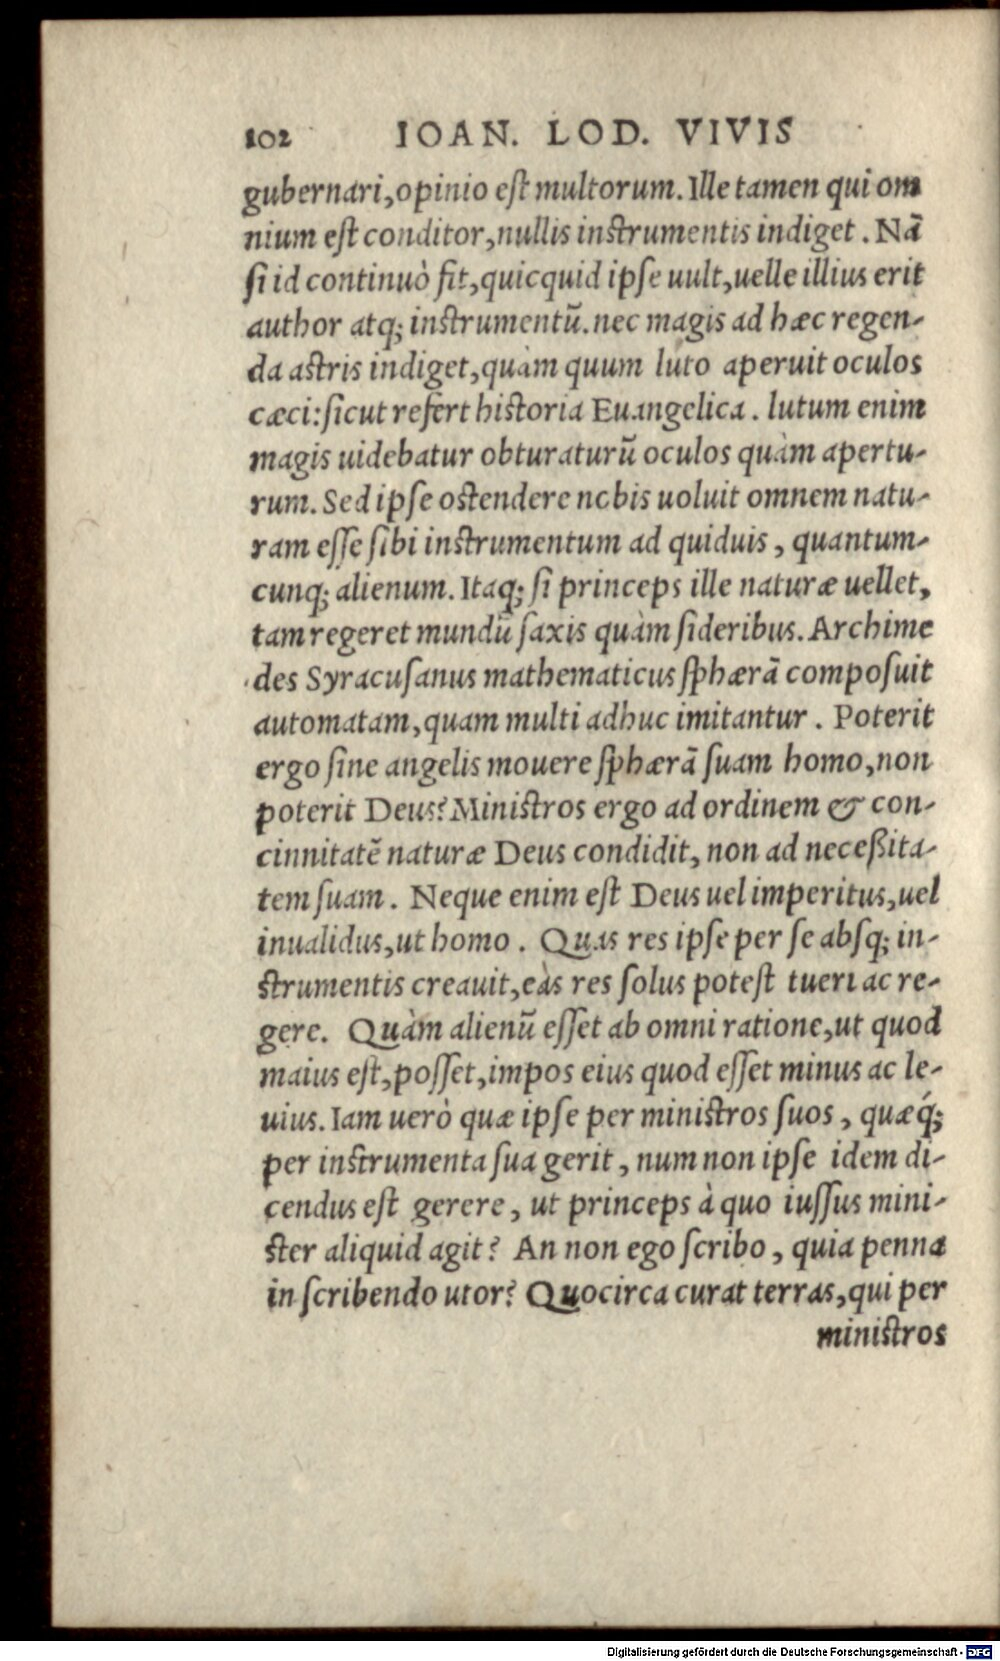 102 IOAN. LOD. VIVIS
gubernari, opinio est multorum. Ille tamen qui om
nium est conditor, nullis instrumentis indiget. Nā
si id continuò fit, quicquid ipse uult, uelle illius erit
author atq; instrumentū. nec magis ad hæc regen-
da astris indiget, quàm quum luto aperuit oculos
cæci: sicut refert historia Euangelica. lutum enim
magis uidebatur obturaturū oculos quàm apertu-
rum. Sed ipse ostendere nobis uoluit omnem natu-
ram esse sibi instrumentum ad quiduis, quantum-
cunq; alienum. Itaq; si princeps ille naturæ uellet,
tam regeret mundū saxis quàm sideribus. Archime
des Syracusanus mathematicus sphærā composuit
automatam, quam multi adhuc imitantur. Poterit
ergo sine angelis mouere sphærā suam homo, non
poterit Deus? Ministros ergo ad ordinem & con-
cinnitatē naturæ Deus condidit, non ad neceßita-
tem suam. Neque enim est Deus uel imperitus, uel
inualidus, ut homo. Quas res ipse per se absq; in-
strumentis creauit, eàs res solus potest tueri ac re-
gere. Quàm alienū esset ab omni ratione, ut quod
maius est, posset, impos eius quod esset minus ac le-
uius. Iam uerò quæ ipse per ministros suos, quæq́;
per instrumenta sua gerit, num non ipse idem di-
cendus est gerere, ut princeps à quo iussus mini-
ster aliquid agit? An non ego scribo, quia penna
in scribendo utor? Quocirca curat terras, qui per
ministros
Digitalisierung gefördert durch die Deutsche Forschungsgemeinschaft - DFG